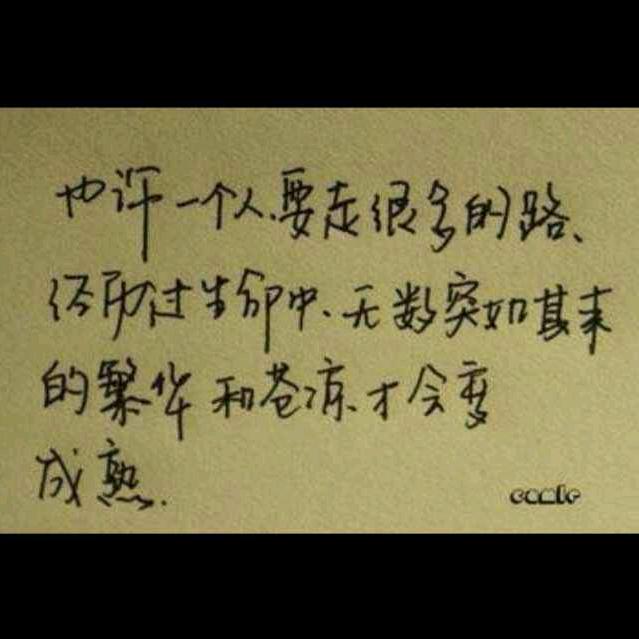 也许一个人.要走很多的路、
经历过生命中.无数突如其来
的繁华和苍凉.才会变
成熟.
comic